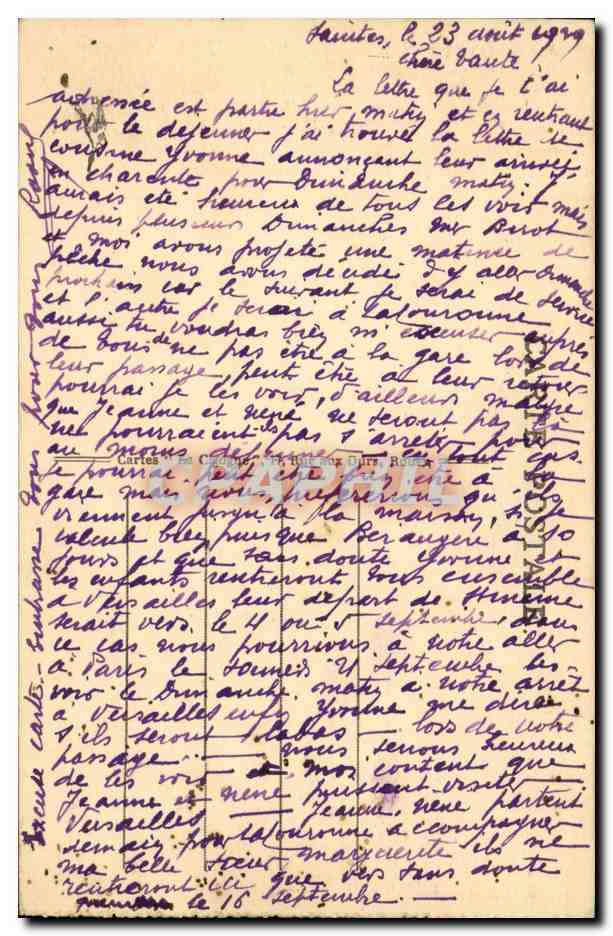 Saintes, le 23 août 1929
Chère Tante
La lettre que je t'ai
adressée est partie hier matin et en rentrant
pour le dejeuner j'ai trouvé la lettre de
cousine Yvonne annonçant leur arrivée
en charente pour Dimanche matin. J'
aurais été heureux de tous les voir mais
depuis plusieurs Dimanches Mr
et moi avons projeté une matinée de
pêche nous avons décidé d'y aller Dimanche
prochain car le suivant je serai de service
et l'autre je serai à Lacouronne
aussi tu voudras bien m'excuser après
de vous de ne pas être à la gare lors de
leur passage, peut être à leur retour
pourrai je les voir, d'ailleurs
que Jeanne et néné ne seront pas là
ne pourraient ils pas s'arreter pour
au moins
te pourra
gare mais nous préfererions qu'ils
viennent jusqu'à la maison, si je
calcule bien puisque Berangère a 30
jours et que sans doute Yvonne et
les enfants rentreront tous ensemble
à Versailles leur départ de
serait vers le 4 ou 5 septembre, dans
ce cas nous pourrions à notre aller
à Paris le Samedi 21 septembre les
voir le Dimanche matin à notre arrêt
à Versailles enfin Yvonne me dira
s'ils seront labas — lors de notre
passage — nous serions heureux
de les voir et moi content que
Jeanne et néné puissent visiter
Versailles — Jeanne, néné partent
demain pour Lacouronne accompagner
ma belle soeur, marguerite ils ne
rentreront ici que vers sans doute
le 16 septembre. —
Excuse carte - embrasse tous pour nous
CARTE POSTALE
Cartes "La Cigogne", 74, Rue aux Ours, Rouen